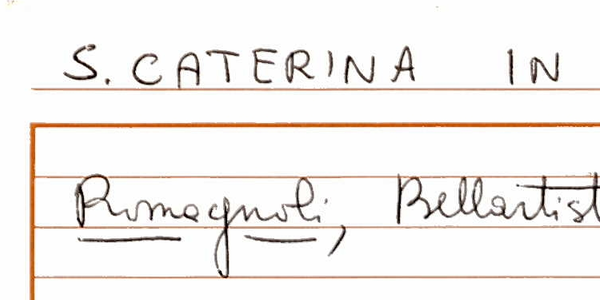 S. CATERINA IN
Romagnoli, Bellartist